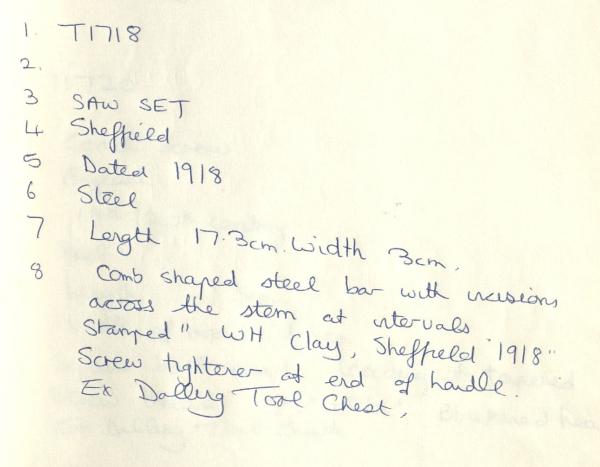 1. T1718
2.
3 SAW SET
4 Sheffield
5 Dated 1918
6 Steel
7 Length 17.3cm. Width 3cm.
8 Comb shaped steel bar with incisions
across the stem at intervals
Stamped " WH Clay, Sheffield 1918"
Screw tightener at end of handle.
Ex Dalling Tool Chest.